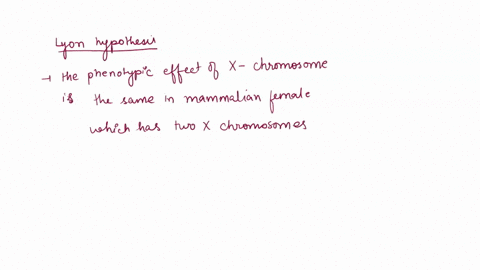 Lyon hypothesis
→ the phenotypic effect of X- chromosome
is the same in mammalian female
which has two X chromosomes